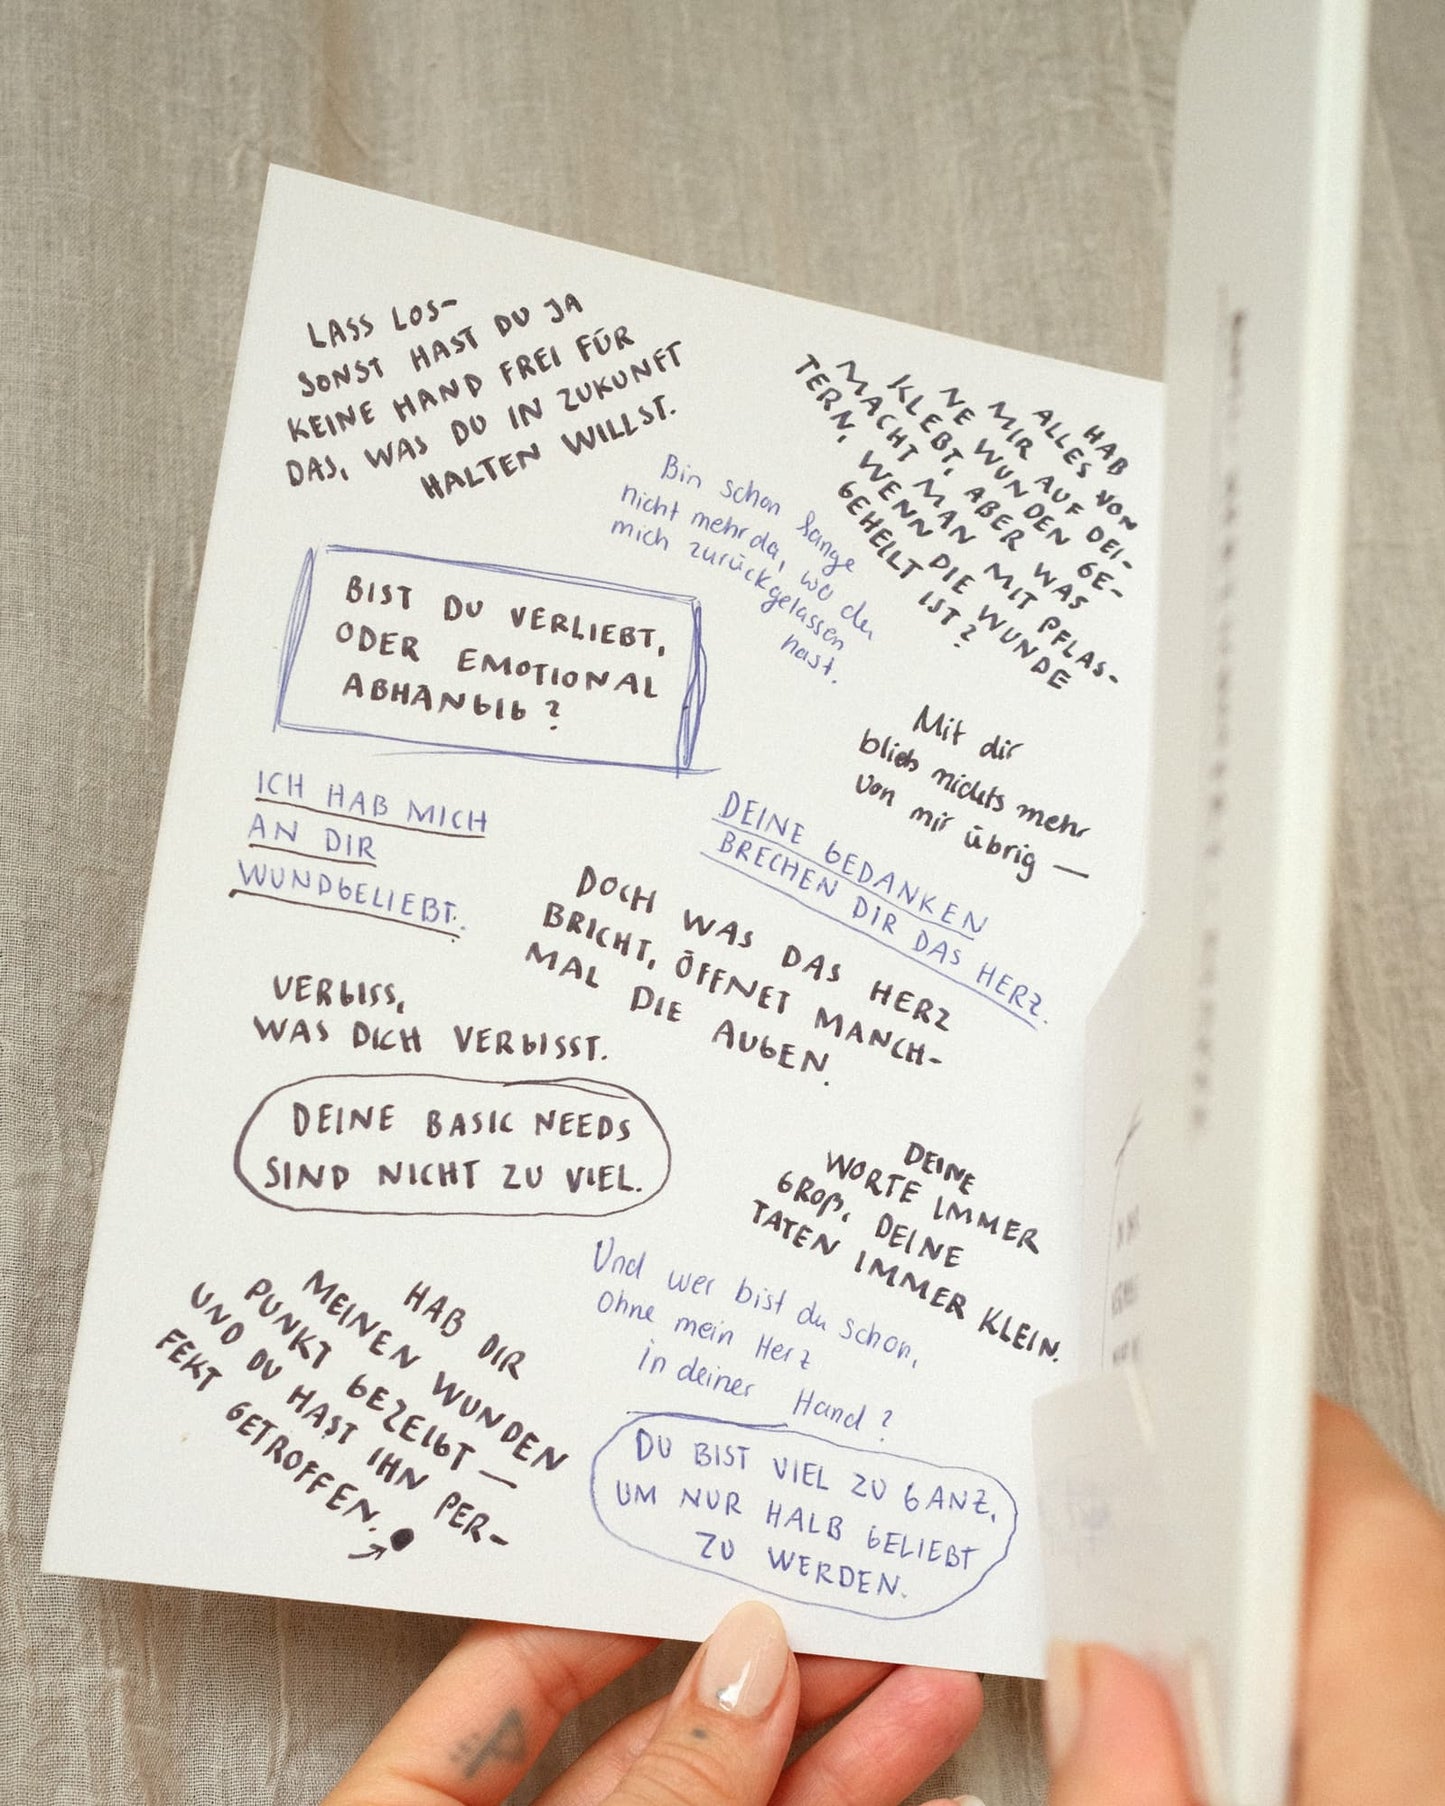 LASS LOS-
SONST HAST DU JA
KEINE HAND FREI FÜR
DAS, WAS DU IN ZUKUNFT
HALTEN WILLST.
HAB
ALLES VON
MIR AUF DEI-
NE WUNDEN GE-
KLEBT, ABER WAS
MACHT MAN MIT PFLAS-
TERN, WENN DIE WUNDE
GEHEILT IST?
Bin schon lange
nicht mehr da, wo du
mich zurückgelassen
hast.
BIST DU VERLIEBT,
ODER EMOTIONAL
ABHÄNGIG?
Mit dir
blieb nichts mehr
von mir übrig —
ICH HAB MICH
AN DIR
WUNDGELIEBT.
DEINE GEDANKEN
BRECHEN DIR DAS HERZ.
DOCH WAS DAS HERZ
BRICHT, ÖFFNET MANCH-
MAL DIE AUGEN.
VERGISS,
WAS DICH VERGISST.
DEINE BASIC NEEDS
SIND NICHT ZU VIEL.
DEINE
WORTE IMMER
GROẞ, DEINE
TATEN IMMER KLEIN.
Und wer bist du schon,
ohne mein Herz
in deiner Hand?
HAB DIR
MEINEN WUNDEN
PUNKT GEZEIGT —
UND DU HAST IHN PER-
FEKT GETROFFEN.
DU BIST VIEL ZU GANZ,
UM NUR HALB GELIEBT
ZU WERDEN.